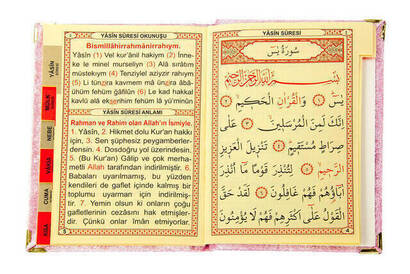 YÂSÎN SÛRESİ OKUNUŞU
Bismillâhirrahmânirrahıym.
Yâsîn (1) Vel kur'ânil hakiym (2) İnne-
ke le minel murseliyn (3) Alâ sırâtım
müstekıym (4) Tenziylel aziyzir rahıym
(5) Li tünzira kavmem mâ ünzira âbâ-
ühüm fehüm ğâfilûn (6) Le kad hakkal
kavlü alâ ekserihim fehüm lâ yü'minûn
YÂSÎN SÛRESİ ANLAMI
Rahman ve Rahim olan Allah'ın ismiyle.
1. Yâsîn, 2. Hikmet dolu Kur'an hakkı
için, 3. Sen şüphesiz peygamberler-
densin. 4. Dosdoğru yol üzerindesin.
5. (Bu Kur'an) Gâlip ve çok merha-
metli Allah tarafından indirilmiştir. 6.
Babaları uyarılmamış, bu yüzden
kendileri de gaflet içinde kalmış bir
toplumu uyarman için indirilmiş-
tir. 7. Yemin olsun ki onların çoğu
gafletlerinin cezasını hak etmişler-
dir. Çünkü onlar îman etmiyorlar.
YÂSİN
MÜLK
NEBE
VAKIA
CUMA
KISA
YÂSÎN SÛRESİ
سُورَةُ يٰسٓ
بِسْمِ اللّٰهِ الرَّحْمٰنِ الرَّحِيمِ
يٰسٓ ١ وَالْقُرْاٰنِ الْحَكِيمِ ٢
اِنَّكَ لَمِنَ الْمُرْسَلِينَ ٣ عَلٰى
صِرَاطٍ مُسْتَقِيمٍ ٤ تَنْزِيلَ الْعَزِيزِ
الرَّحِيمِ ٥ لِتُنْذِرَ قَوْمًا مَٓا اُنْذِرَ
اٰبَٓاؤُهُمْ فَهُمْ غَافِلُونَ ٦ لَقَدْ حَقَّ
الْقَوْلُ عَلٰٓى اَكْثَرِهِمْ فَهُمْ لَا يُؤْمِنُونَ
4